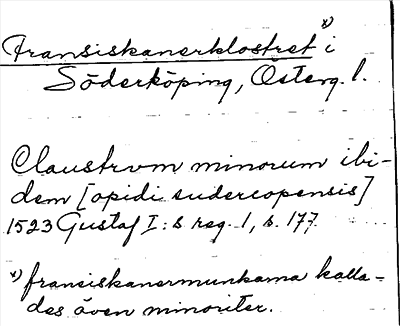 Fransiskanerklostret x) i
Söderköping, Österg. l.
Claustrvm minorum ibi-
dem [opidi sudercopensis]
1523 Gustaf I:s reg. 1, s. 177
x) fransiskanermunkarna kalla-
des även minoriter.